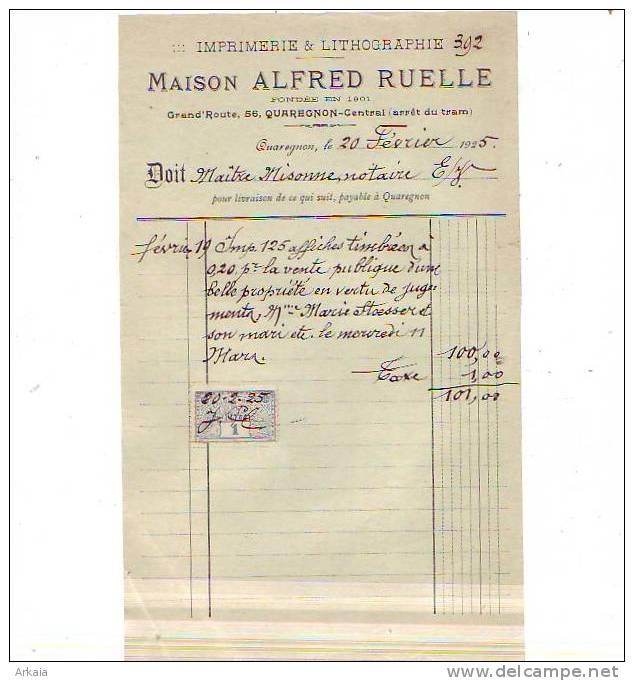 ::: IMPRIMERIE & LITHOGRAPHIE 392
MAISON ALFRED RUELLE
FONDÉE EN 1901
Grand'Route, 56, QUAREGNON-Central (arrêt du tram)
Quaregnon, le 20 Février 1925.
Doit Maître Misonne, notaire E/V
pour livraison de ce qui suit, payable à Quaregnon
février 19 Imp. 125 affiches timbrées à
0,20 pr la vente publique d'une
belle propriété en vertu de juge-
ments, Mme Marie Stoesser et
son mari etc. le mercredi 11
Mars. 100,00
Taxe 1,00
101,00
20-2-25
1
Arkaia
www.delcampe.net